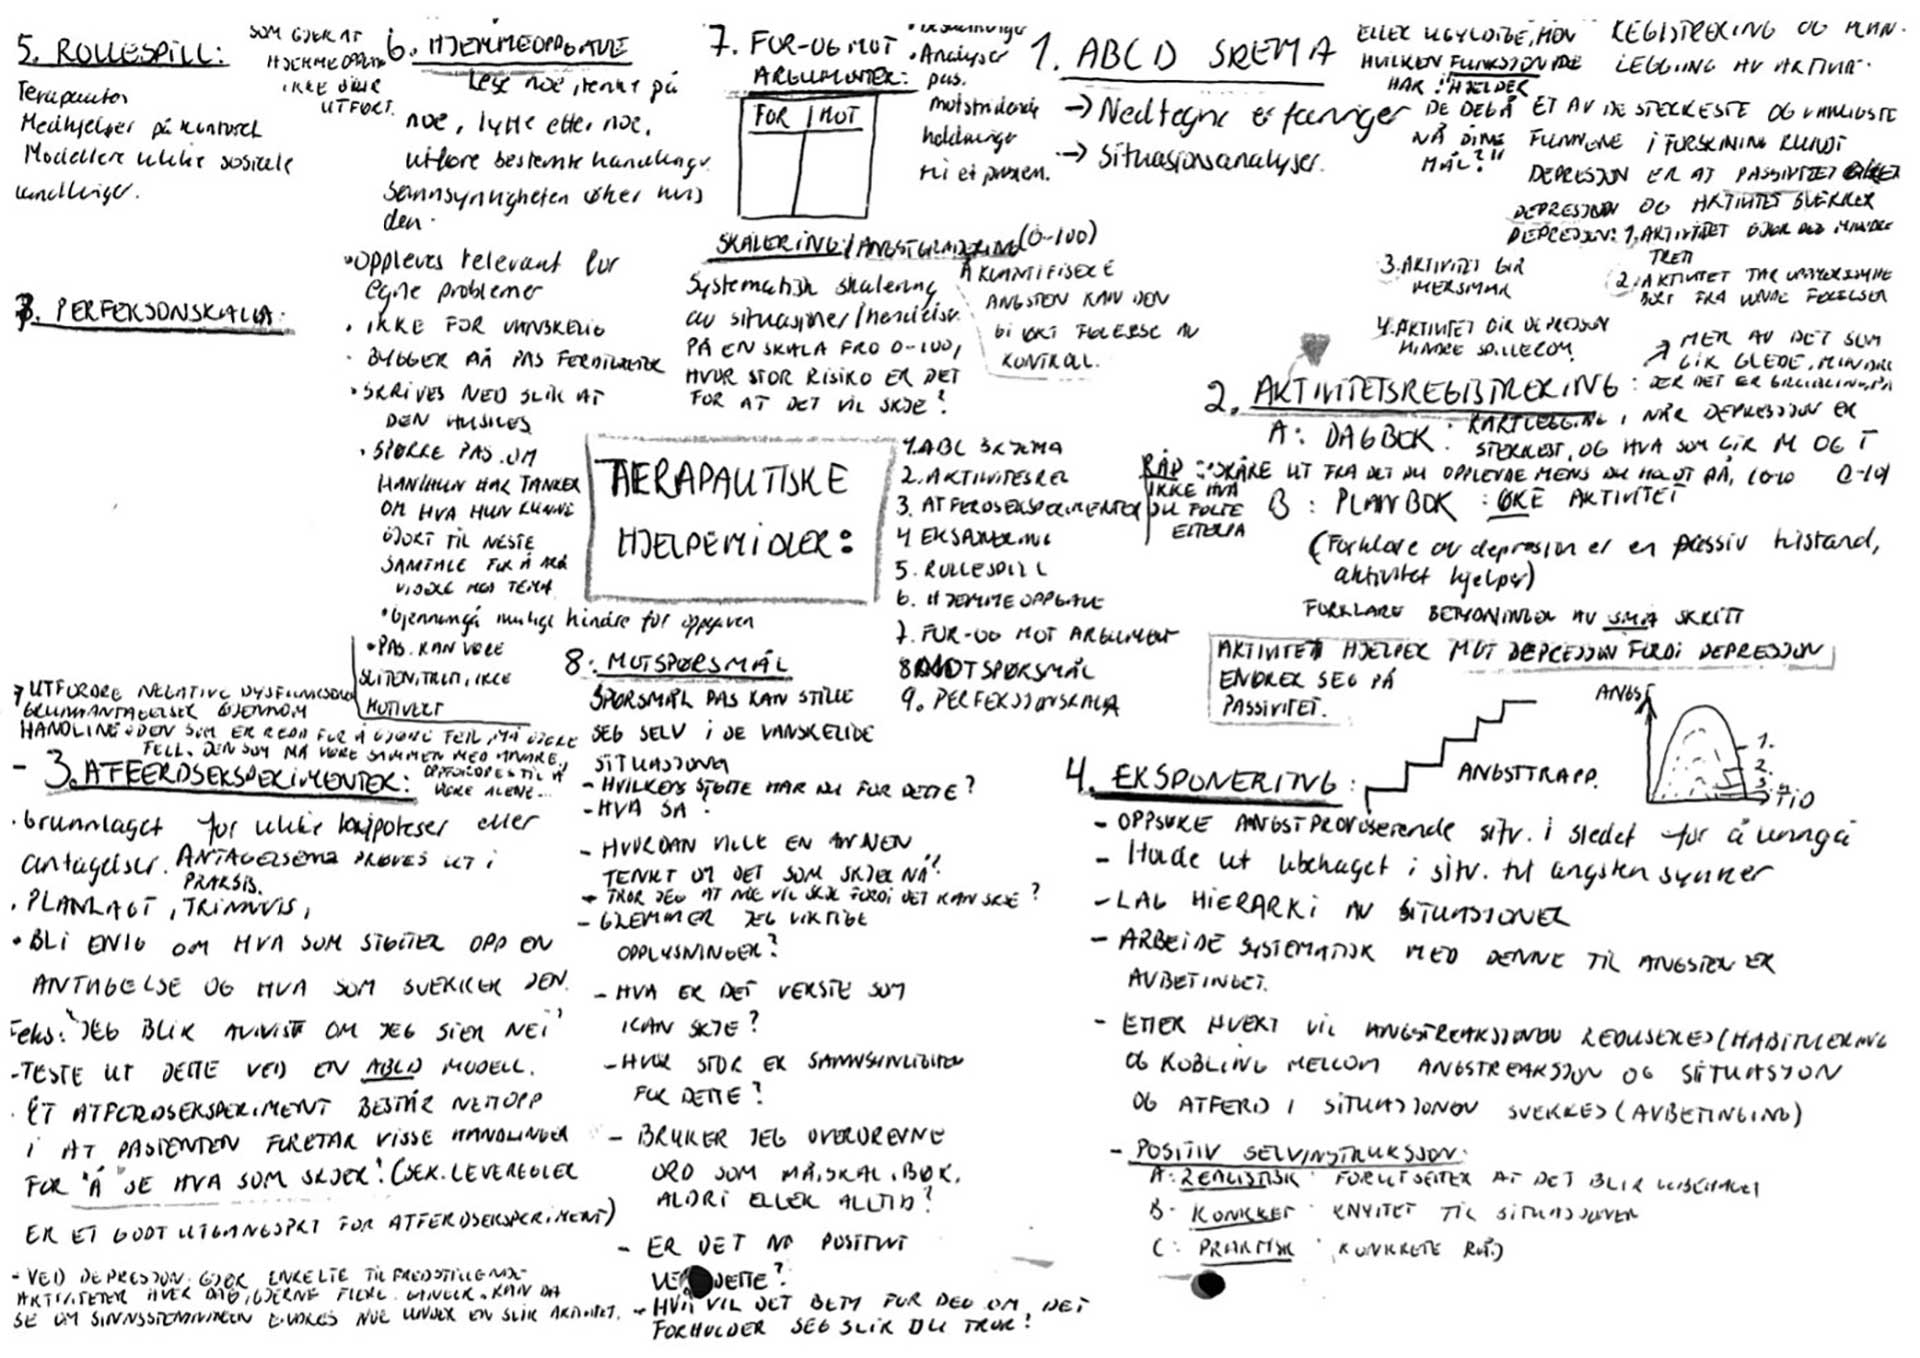 5. ROLLESPILL:
Terapeuten
Medhjelper på kontoret
Modellere ulike sosiale
handlinger.
9. PERFEKSJONSKALA:
SOM GJØR AT
HJEMMEOPPG
IKKE BLIR
UTFØRT.
6. HJEMMEOPPGAVE
Lese noe, tenke på
noe, lytte etter noe,
utføre bestemte handlinger.
Sannsynligheten øker hvis
den:
• Oppleves relevant for
egne problemer
• IKKE FOR VANSKELIG
• BYGGER PÅ PAS FERDIGHETER
• SKRIVES NED SLIK AT
DEN HUSKES
• SPØRRE PAS. OM
HAN/HUN HAR TANKER
OM HVA HUN KUNNE
GJORT TIL NESTE
SAMTALE FOR Å
VIDERE MED TEMA
• Gjennomgå mulige hindre for oppgaven
• PAS. KAN VÆRE
SLITEN, TRETT, IKKE
MOTIVERT
7. FOR-OG MOT
ARGUMENTER:
FOR / MOT
• Analyser
pas.
motstridende
holdninger
til et problem.
SKALERING/ANGSTGRADERING (0-100)
Systematisk skalering
av situasjoner/hendelser.
PÅ EN SKALA FRA 0-100,
HVOR STOR RISIKO ER DET
FOR AT DET VIL SKJE?
Å KVANTIFISERE
ANGSTEN KAN DEN
GI ØKT FØLELSE AV
KONTROLL.
TAERAPAUTISKE
HJELPEMIDLER:
1. ABC SKJEMA
2. AKTIVITESREG
3. ATFERDSEKSPERIMENTER
4 EKSPONERING
5. ROLLESPILL
6. HJEMMEOPPGAVE
7. FOR-OG MOT ARGUMENT
8. MOTSPØRSMÅL
9. PERFEKSJONSKALA
1. ABCD SKEMA
→ Nedtegne erfaringer
→ Situasjonsanalyser.
ELLER UGYLDIGE, MEN
HVILKEN FUNKSJON DE
HAR! "HJELPER
DE DEG Å
NÅ DINE
MÅL?"
REGISTRERING OG PLAN-
LEGGING AV AKTIVIT.
ET AV DE STERKESTE OG VANLIGSTE
FUNNENE I FORSKNING RUNDT
DEPRESJON ER AT PASSIVITET ØKER
DEPRESJON OG AKTIVITET SVEKKER
DEPRESJON: 1. AKTIVITET GJØR DEG MINDRE
TRETT
2. AKTIVITET TAR OPPMERKSOMHET
BORT FRA VONDE FØLELSER
3. AKTIVITET GIR
MERSMAK
4. AKTIVITET GIR DEPRESJON
MINDRE SPILLEROM
↗ MER AV DET SOM
GIR GLEDE, MINDRE
DER DET ER GRUBLING PÅ
2. AKTIVITETSREGISTRERING:
A: DAGBOK: KARTLEGGING, NÅR DEPRESJON ER
STERKEST, OG HVA SOM GIR M OG T
RÅD: SKÅRE UT FRA DET DU OPPLEVDE MENS DU HOLDT PÅ,
IKKE HVA
DU FØLTE
ETTERPÅ
B: PLANBOK: ØKE AKTIVITET
(Forklare av depresjon er en passiv tilstand,
aktivitet hjelper)
FORKLARE BETYDNINGEN AV SMÅ SKRITT
AKTIVITET HJELPER MOT DEPRESJON FORDI DEPRESJON
ENDRER SEG PÅ
PASSIVITET.
→ UTFORDRE NEGATIVE DYSFUNKSJO
GRUNNANTAGELSER GJENNOM
HANDLING: DEN SOM ER REDD FOR Å GJØRE FEIL, MÅ GJØRE
FEIL. DEN SOM MÅ VÆRE SAMMEN MED ANDRE,
OPPFORDRES TIL Å
VÆRE ALENE...
- 3. ATFERDSEKSPERIMENTER:
• Grunnlaget for ulike hypoteser eller
antagelser. ANTAGELSENE PRØVES UT I
PRAKSIS.
• PLANLAGT, TRINNVIS,
• BLI ENIG OM HVA SOM STØTTER OPP EN
ANTAGELSE OG HVA SOM SVEKKER DEN.
Feks: "JEG BLIR AVVIST OM JEG SIER NEI"
- TESTE UT DETTE VED EN ABCD MODELL.
• ET ATFERDSEKSPERIMENT BESTÅR NETTOPP
I AT PASIENTEN FORETAR VISSE HANDLINGER
FOR "Å SE HVA SOM SKJER". (SEK. LEVEREGLER
ER ET GODT UTGANGSPKT FOR ATFERDSEKSPERIMENT)
- VED DEPRESJON: GJØR ENKELTE TILFREDSTILLENDE
AKTIVITETER HVER DAG, GJERNE FLERE GANGER. KAN DA
SE OM SINNSSTEMNINGEN ENDRES NOE UNDER EN SLIK AKTIVITET.
8: MOTSPØRSMÅL
SPØRSMÅL PAS KAN STILLE
SEG SELV I DE VANSKELIGE
SITUASJONA
- HVILKEN STØTTE HAR DU FOR DETTE?
- HVA SÅ?
- HVORDAN VILLE EN ANNEN
TENKT OM DET SOM SKJER NÅ?
- TROR JEG AT NOE VIL SKJE FORDI DET KAN SKJE?
- GLEMMER JEG VIKTIGE
OPPLYSNINGER?
- HVA ER DET VERSTE SOM
KAN SKJE?
- HVOR STOR ER SANNSYNLIGHETEN
FOR DETTE?
- BRUKER JEG OVERDREVNE
ORD SOM MÅ, SKAL, BØR,
ALDRI ELLER ALLTID?
- ER DET NO POSITIVT
VED DETTE?
- HVA VIL DET BETY FOR DEG OM DET
FORHOLDER SEG SLIK DU TROR?
4. EKSPONERING:
ANGSTTRAPP.
ANGST
1.
2.
3.
4.
TID
- OPPSØKE ANGSTPROVOSERENDE sitv. i stedet for å unngå
- Holde ut ubehaget i sitv. til angsten synker
- LAG HIERARKI AV SITUASJONER
- ARBEIDE SYSTEMATISK MED DENNE TIL ANGSTEN ER
AVBETINGET.
- ETTER HVERT VIL ANGSTREAKSJONEN REDUSERES (HABITUERING
OG KOBLING MELLOM ANGSTREAKSJON OG SITUASJON
OG ATFERD I SITUASJONEN SVEKKES (AVBETINGING)
- POSITIV SELVINSTRUKSJON:
A: REALISTISK: FORUTSETTER AT DET BLIR UBEHAGELI
B: KONKRET: KNYTTET TIL SITUASJONEN
C: PRAKTISK: KONKRETE RÅD